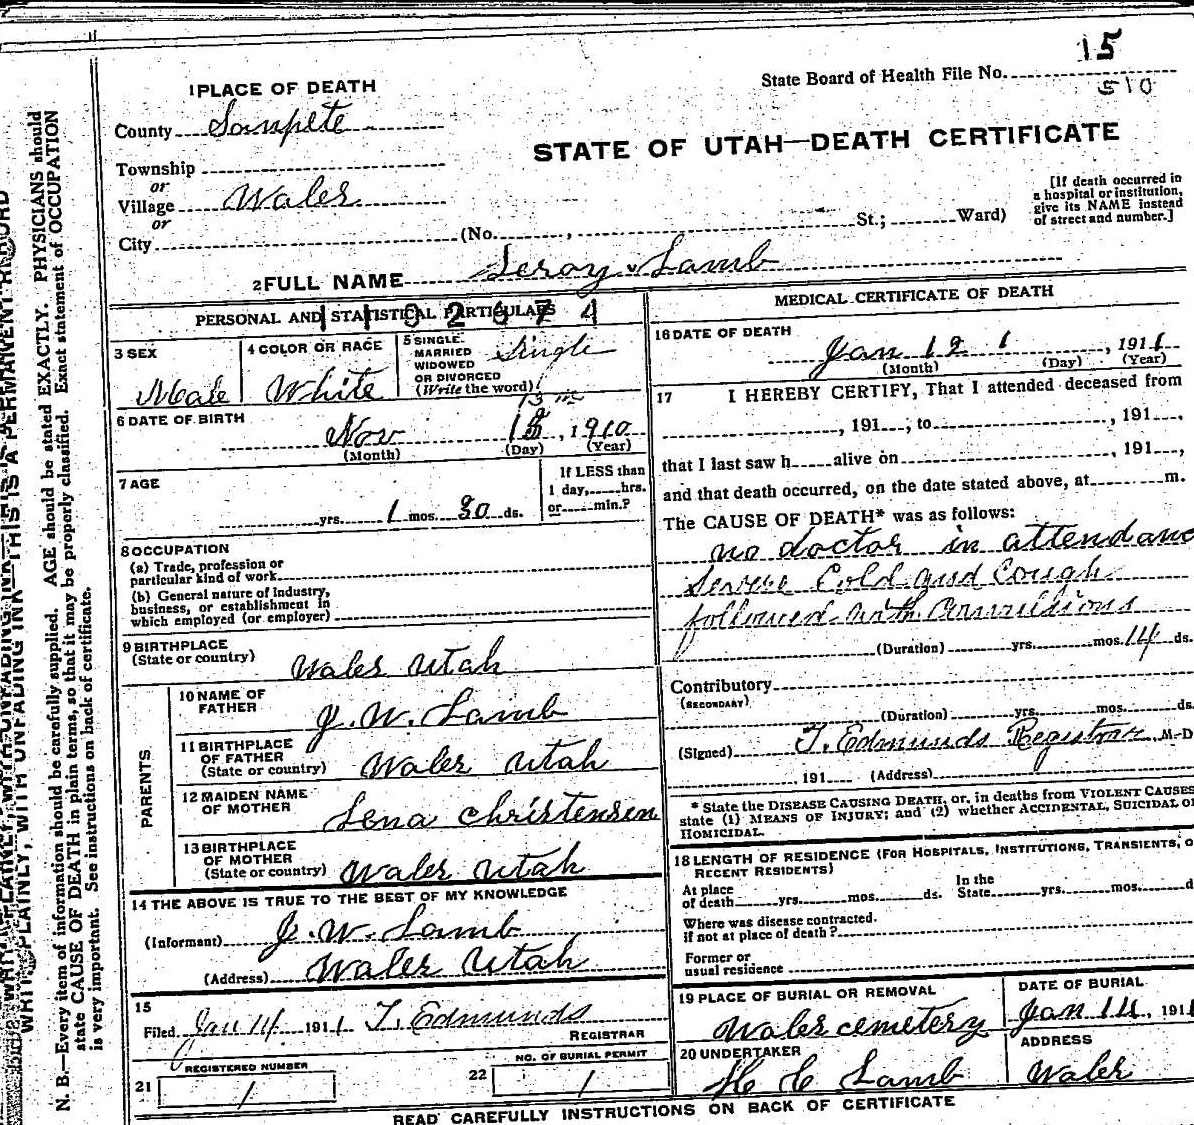 15
State Board of Health File No.
510
1 PLACE OF DEATH
County Sanpete
STATE OF UTAH—DEATH CERTIFICATE
Township
or
Village Wales
or
City (No. , St.; Ward)
[If death occurred in
a hospital or institution,
give its NAME instead
of street and number.]
2 FULL NAME Leroy Lamb
PERSONAL AND STATISTICAL PARTICULARS
3 SEX
Meale
4 COLOR OR RACE
White
5 SINGLE
MARRIED
WIDOWED
OR DIVORCED
(Write the word)
Single
6 DATE OF BIRTH
13
Nov , 1910
(Month) (Day) (Year)
7 AGE
yrs. 1 mos. 30 ds.
If LESS than
1 day, hrs.
or min.?
8 OCCUPATION
(a) Trade, profession or
particular kind of work
(b) General nature of Industry,
business, or establishment in
which employed (or employer)
9 BIRTHPLACE
(State or country) Wales Utah
PARENTS
10 NAME OF
FATHER J. W. Lamb
11 BIRTHPLACE
OF FATHER
(State or country) Wales Utah
12 MAIDEN NAME
OF MOTHER Lena Christensen
13 BIRTHPLACE
OF MOTHER
(State or country) Wales Utah
14 THE ABOVE IS TRUE TO THE BEST OF MY KNOWLEDGE
(Informant) J. W. Lamb
(Address) Wales Utah
15
Filed Jan 14 1911 T. Edmunds
REGISTRAR
21 REGISTERED NUMBER
1
22 NO. OF BURIAL PERMIT
1
MEDICAL CERTIFICATE OF DEATH
16 DATE OF DEATH
Jan 12 1 , 1911
(Month) (Day) (Year)
17 I HEREBY CERTIFY, That I attended deceased from
, 191 ; to , 191 ,
that I last saw h alive on , 191 ,
and that death occurred, on the date stated above, at m.
The CAUSE OF DEATH* was as follows:
no doctor in attendanc
Severe Cold and Cough
followed with Convulsions
(Duration) yrs. mos. 14 ds.
Contributory
(SECONDARY)
(Duration) yrs. mos. ds.
(Signed) T. Edmunds Registrar M-D
191 (Address)
* State the DISEASE CAUSING DEATH, or, in deaths from VIOLENT CAUSES
state (1) MEANS OF INJURY; and (2) whether ACCIDENTAL, SUICIDAL OR
HOMICIDAL.
18 LENGTH OF RESIDENCE (FOR HOSPITALS, INSTITUTIONS, TRANSIENTS, O
RECENT RESIDENTS)
At place
of death yrs. mos. ds.
In the
State yrs. mos. d
Where was disease contracted.
if not at place of death?
Former or
usual residence
19 PLACE OF BURIAL OR REMOVAL
Wales cemetery
DATE OF BURIAL
Jan 14, 1911
20 UNDERTAKER
H C Lamb
ADDRESS
Wales
READ CAREFULLY INSTRUCTIONS ON BACK OF CERTIFICATE
WRITE PLAINLY, WITH UNFADING INK—THIS IS A PERMANENT RECORD
N. B.—Every item of information should be carefully supplied. AGE should be stated EXACTLY. PHYSICIANS should
state CAUSE OF DEATH in plain terms, so that it may be properly classified. Exact statement of OCCUPATION
is very important. See instructions on back of certificate.